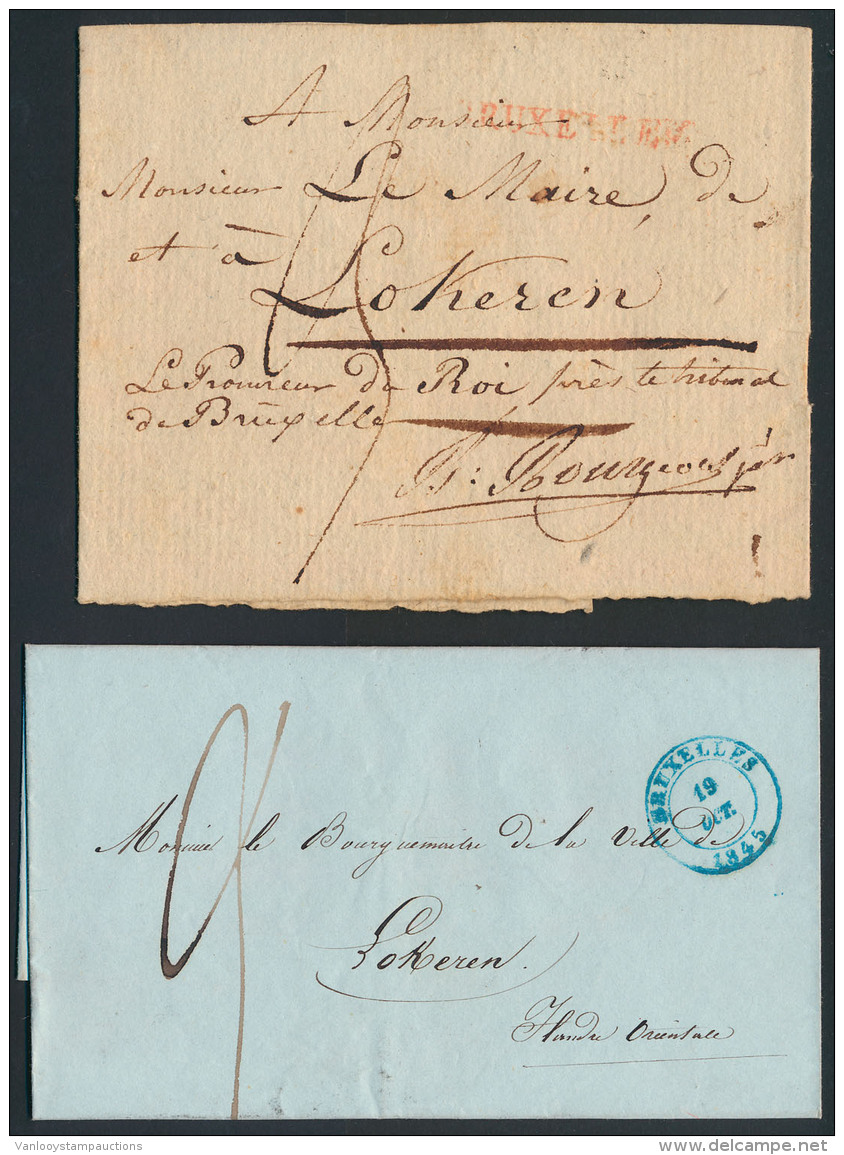 BRUXELLES
A Monsieur
Monsieur Le Maire, de
et à
Lokeren
Le Procureur du Roi près le tribunal
de Bruxelle
B: Bourgeois
BRUXELLES
19
OCT.
1845
Monsieur le Bourguemaitre de la Ville de
Lokeren.
Flandre Orientale
Vanlooystampauctions
delcampe.net